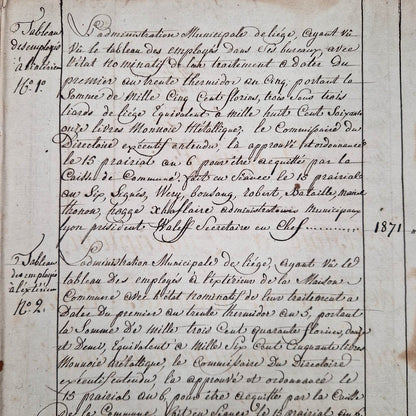 Tableau
des employés
à l'extérieur
N.° 1.°
L'administration Municipale de liége, ayant vû
Vû le tableau des employés dans ses bureaux avec
l'état nominatif de leur traitement a datér du
premier au trente thermidor an cinq portant la
Somme de mille Cinq Cent florins, trois sous trois
liards de liége Equivalent à mille huit Cent Soixante
onze livres Monnoie Métallique; le Commissaire du
Directoire executif entendu, la approuvé et ordonnancé
le 15 prairial an 6 pour être acquitté par la
Caisse de Commune. fait en Séance le 15 prairial
an Six Signés, Wery, bouhang, robert, Bataille,
thonon, hogge Xhaflaire administrateurs municipaux
lyon président, Waleff Secretaire en Chef
1871
Tableau
des employés
à l'extérieur
N.° 2.
L'administration Municipale de liége, ayant vû le
tableau Des employés à l'éxtérieur de la Maison
Commune avec l'état nominatif de leur traitement a
Datér du premier au trente thermidor an 5, portant
la Somme de mille trois Cent quarante florins, dix
et Demi, Equivalent a mille Six Cent Cinquante livres
Monnoie métallique, le Commissaire du Directoire
executif entendu, la approuvé et ordonnancé le
15 prairial an 6, pour être acquitté par la Caisse
De la Commune, fait en Séance le 15 prairial an 6